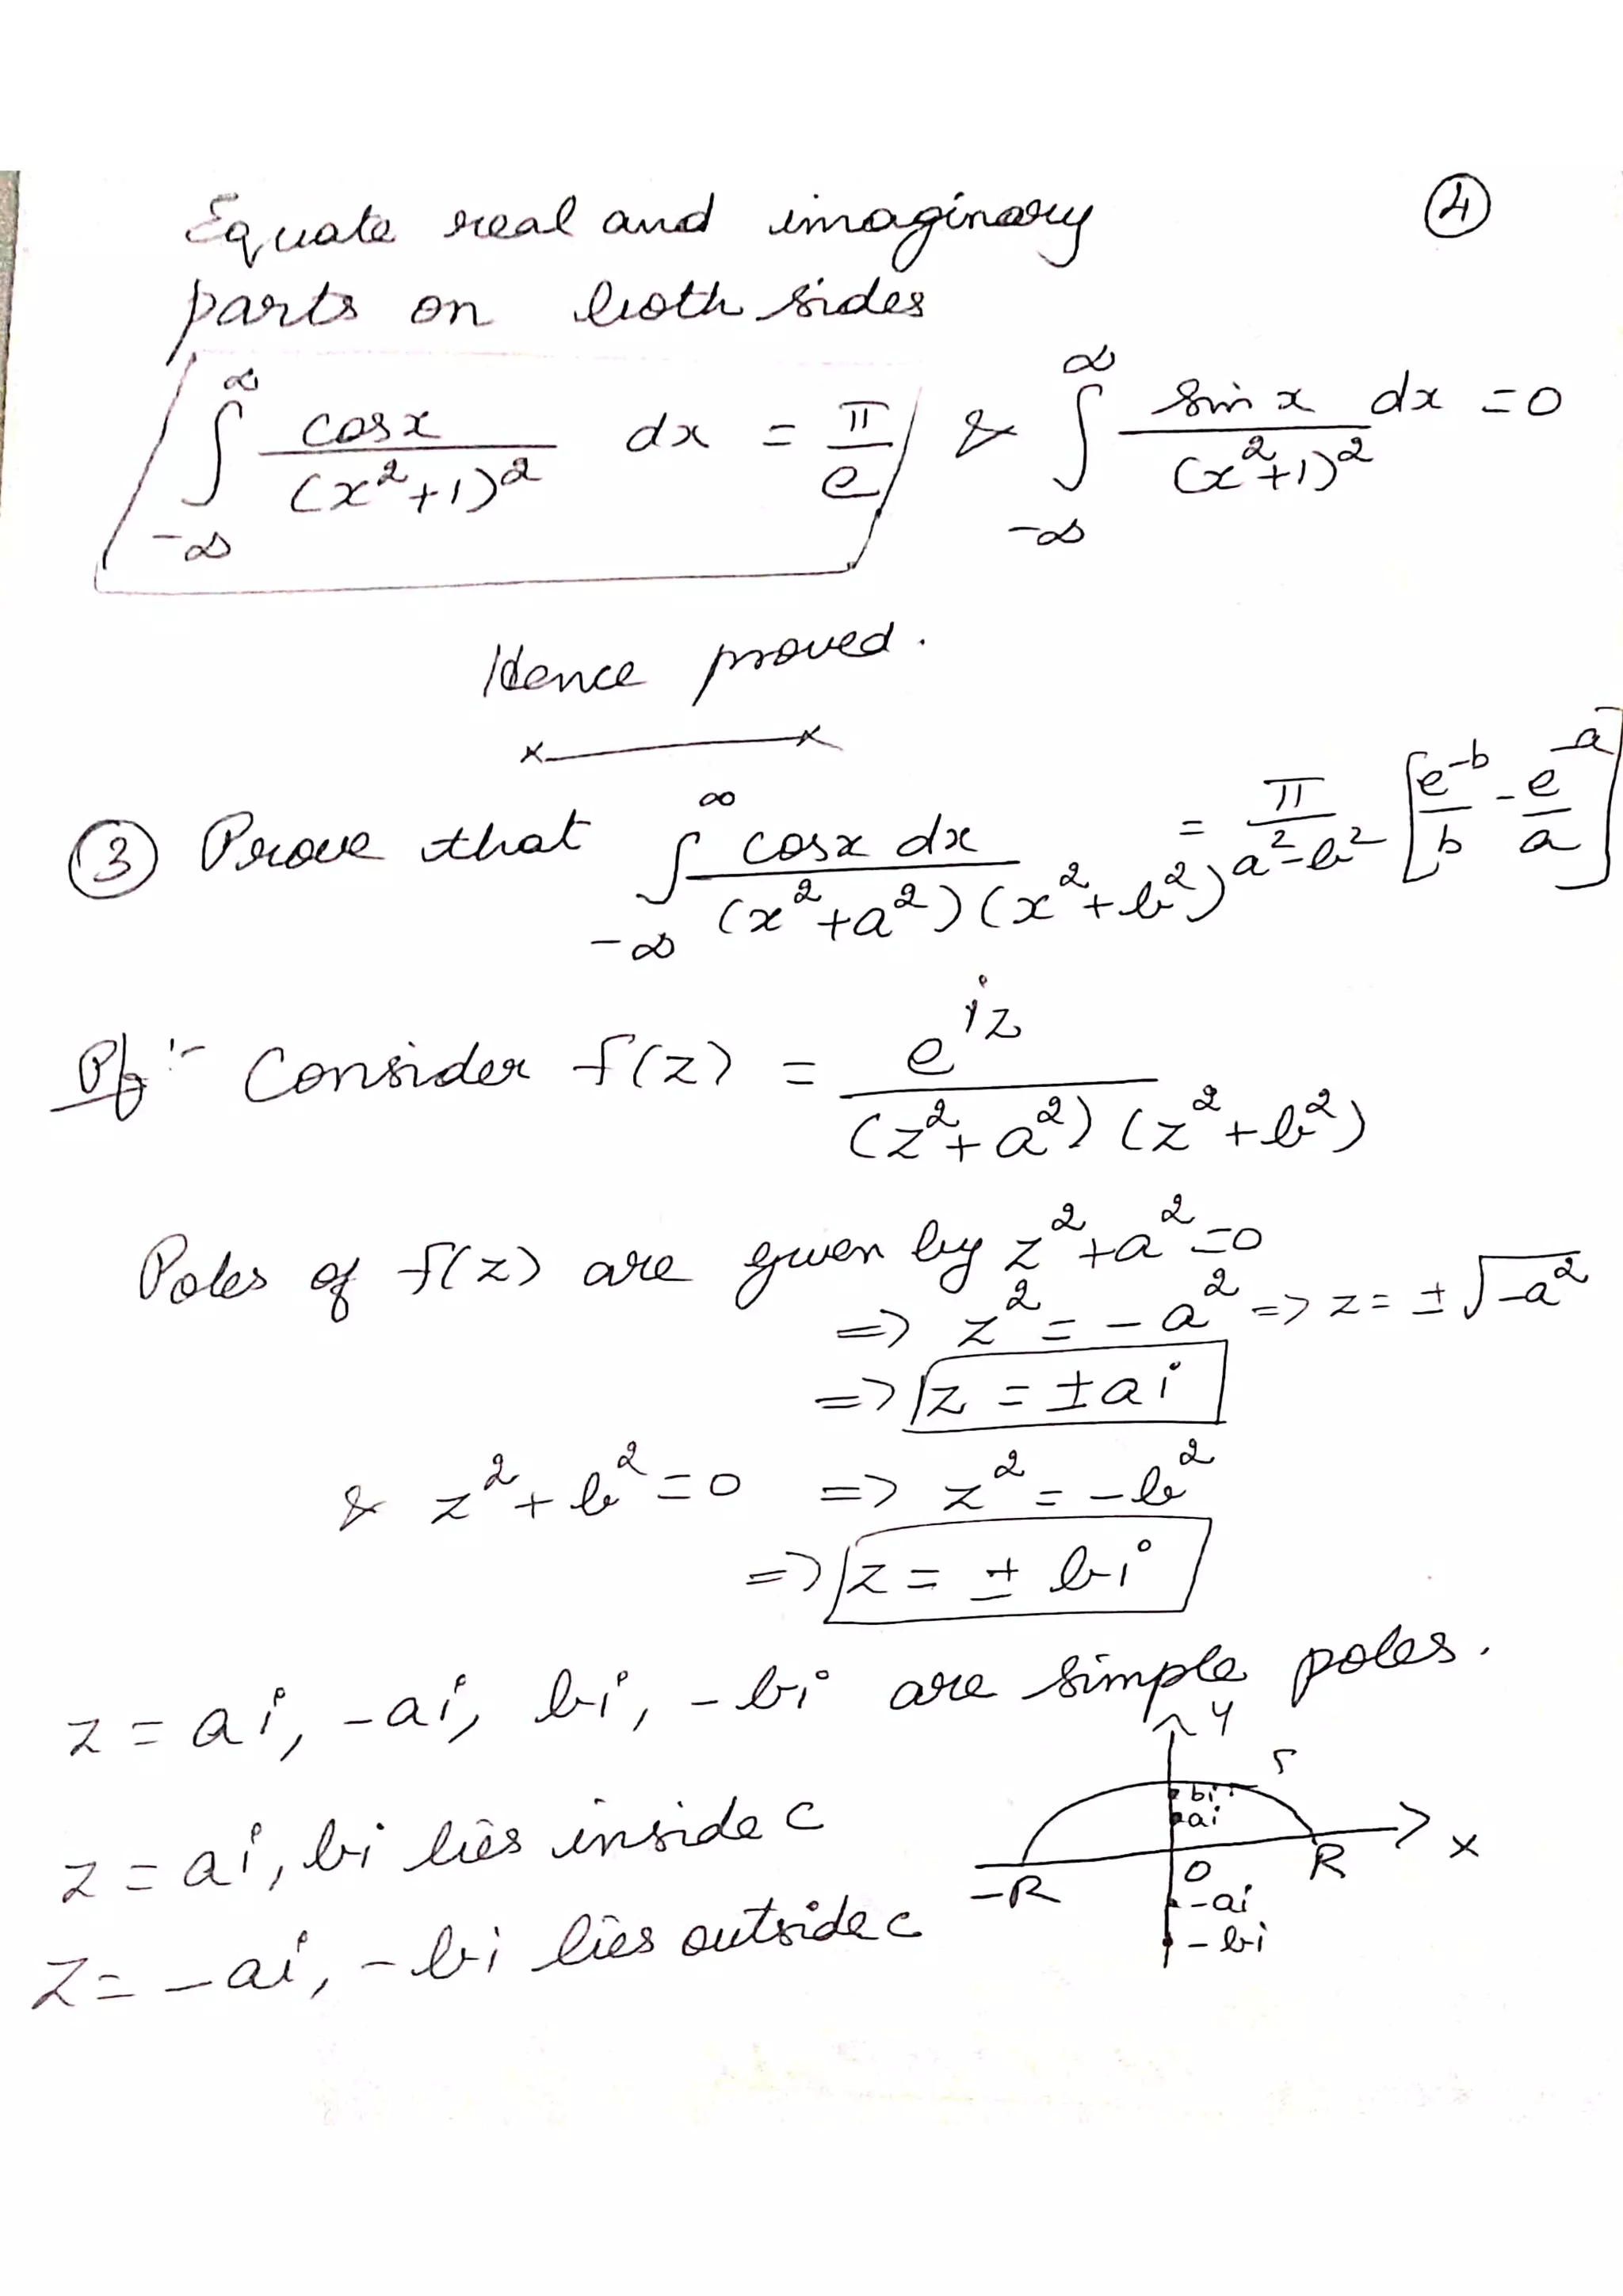 Equate real and imaginary ④
parts on both sides
∫_{-∞}^{∞} cosx/(x²+1)² dx = π/e & ∫_{-∞}^{∞} sin x/(x²+1)² dx = 0
Hence proved.
③ Prove that ∫_{-∞}^{∞} cosx dx/(x²+a²)(x²+b²) = π/a²-b² [e^{-b}/b - e^{-a}/a]
Pf:- Consider f(z) = e^{iz}/(z²+a²)(z²+b²)
Poles of f(z) are given by z²+a²=0
=> z² = -a² => z = ±√-a²
=> z = ±ai
& z²+b²=0 => z² = -b²
=> z = ± bi
z = ai, -ai, bi, -bi are simple poles.
Y
bi
ai
z = ai, bi lies inside c
X
-R O R
-ai
z = -ai, -bi lies outside c
-bi